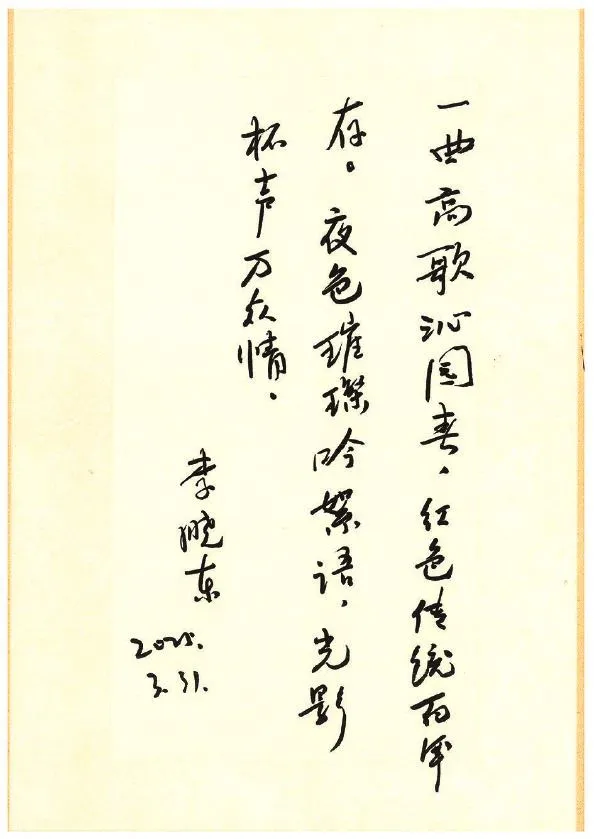 一曲高歌沁园春，红色传统百年
存。夜色璀璨吟絮语，光影
杯声万众情。
李晓东
2025.
3.31.